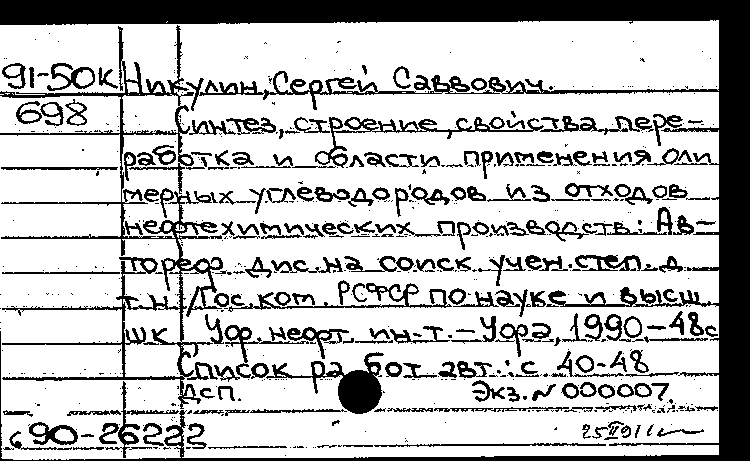 91-50К Никулин, Сергей Саввович.
698 Синтез, строение, свойства, пере-
работка и области применения оли
мерных углеводородов из отходов
нефтехимических производств: Ав-
тореф дис. на соиск учен. степ. д
т. н. /Гос. ком. РСФСР по науке и высш
шк Уф. нефт. ин-т. – Уфа, 1990. – 48с
Список ра бот авт.: с 40-48
Дсп. Экз. № 000007.
90-26222 25 II 91